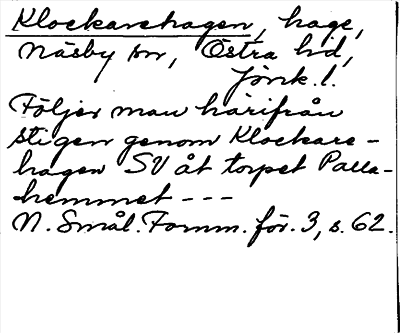 Klockarehagen, hage,
Näsby sn, Östra hd,
Jönk. l.
Följer man härifrån
stigen genom Klockare-
hagen SV åt torpet Palla-
hemmet ---
N. Smål. Fornm. för. 3, s. 62.